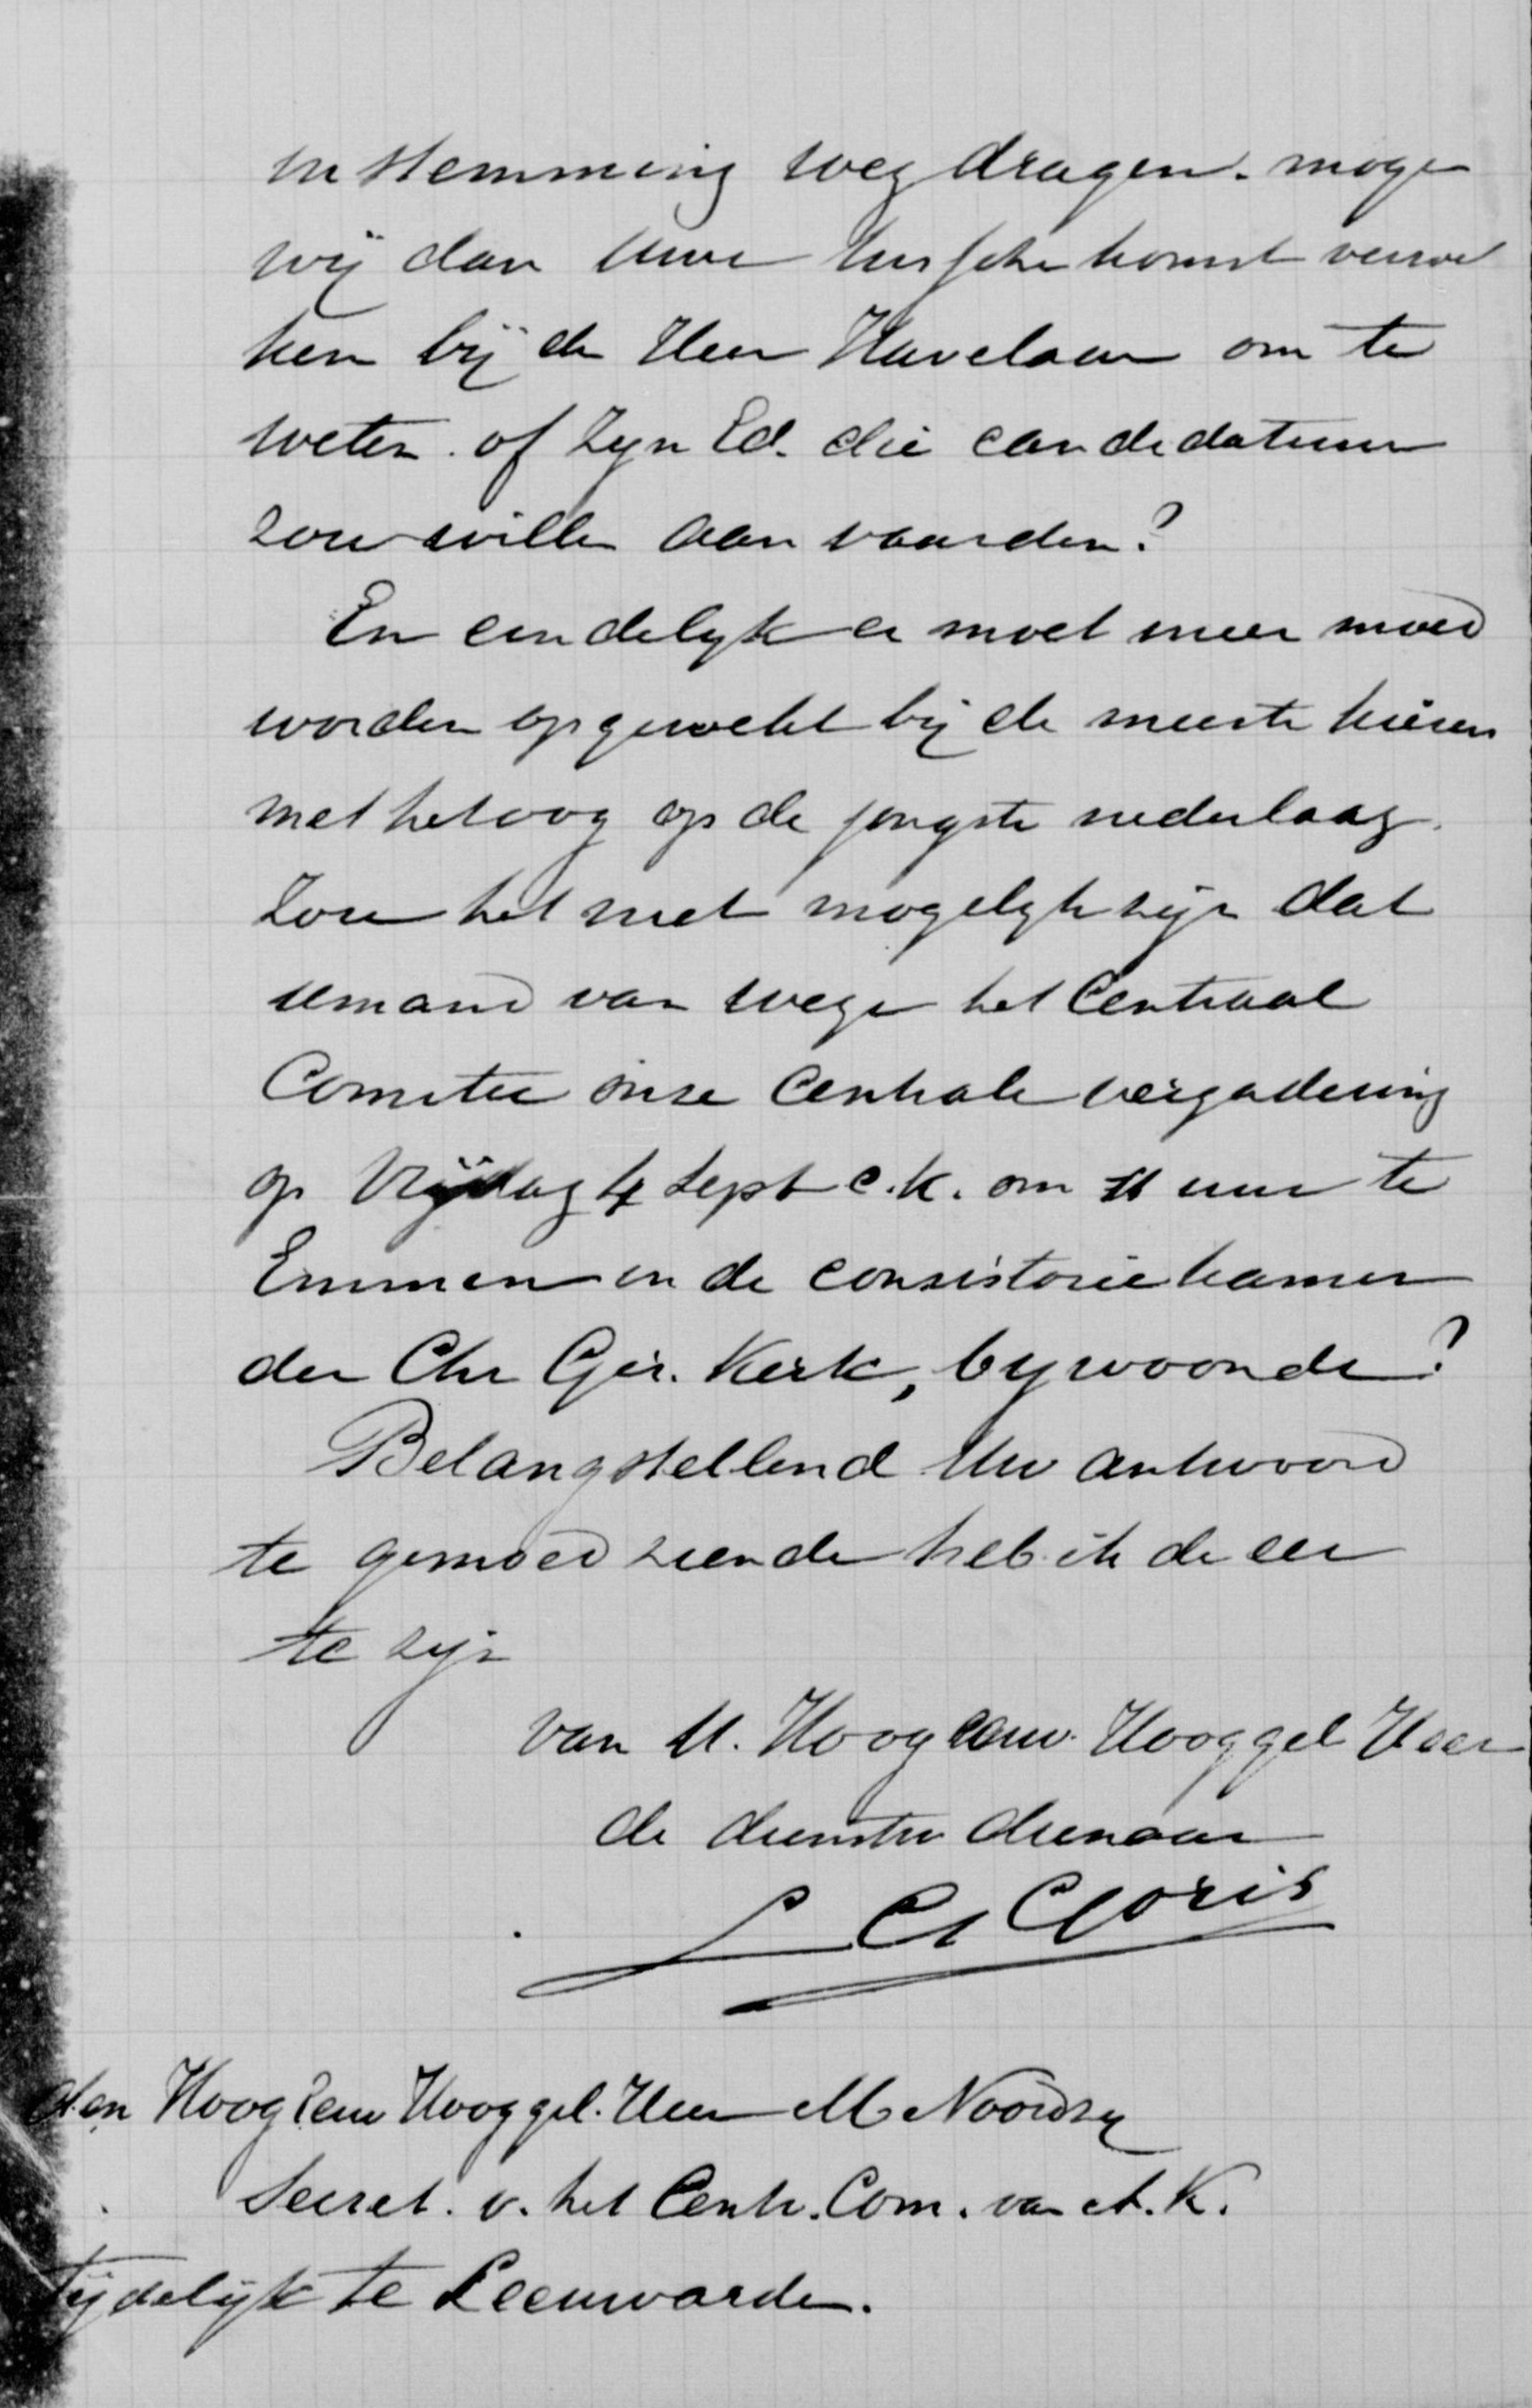 instemming wegdragen. moge
wij dan Uwe tusschenkomst verzoe
ken bij de Heer Havelaar om te
weten of Zyn Ed. die candidatuur
zou wille aanvaarden?
En eindelyk er moet meer moed
worden opgewekt bij de meeste kiezers
met het oog op de jongste nederlaag.
Zou het niet mogelyk zijn dat
iemand van wege het Centraal
Comitee onze Centrale vergadering
op Vrijdag 4 Sept e.k. om 11 uur te
Emmen in de consistoriekamer
der Chr Ger. Kerk, bywoonde?
Belangstellend Uw antwoord
te gemoed ziende heb ik de eer
te zijn
van U. HoogEerw. Hooggel Heer
de dienstw dienaar
Goris
Aan HoogEerw Hooggel. Heer M Noordzy
Secret. v. het Centr. Com. van A.K.
Tijdelijk te Leeuwarden.